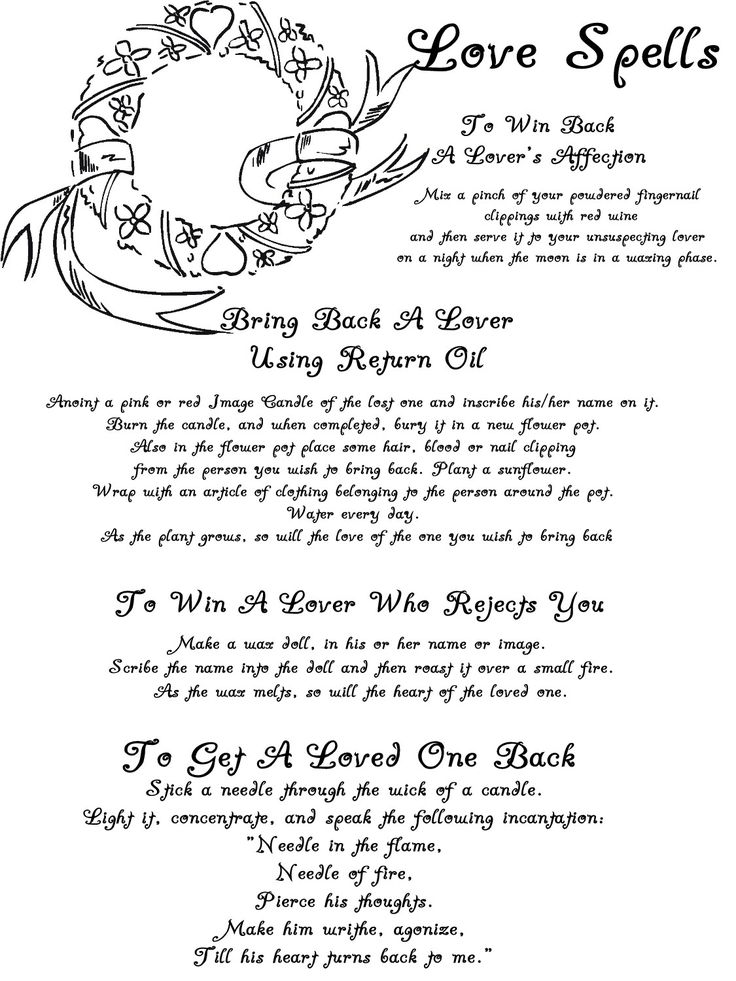 Love Spells
To Win Back
A Lover's Affection
Mix a pinch of your powdered fingernail
clippings with red wine
and then serve it to your unsuspecting lover
on a night when the moon is in a waxing phase.
Bring Back A Lover
Using Return Oil
Anoint a pink or red Image Candle of the lost one and inscribe his/her name on it.
Burn the candle, and when completed, bury it in a new flower pot.
Also in the flower pot place some hair, blood or nail clipping
from the person you wish to bring back. Plant a sunflower.
Wrap with an article of clothing belonging to the person around the pot.
Water every day.
As the plant grows, so will the love of the one you wish to bring back
To Win A Lover Who Rejects You
Make a wax doll, in his or her name or image.
Scribe the name into the doll and then roast it over a small fire.
As the wax melts, so will the heart of the loved one.
To Get A Loved One Back
Stick a needle through the wick of a candle.
Light it, concentrate, and speak the following incantation:
"Needle in the flame,
Needle of fire,
Pierce his thoughts.
Make him writhe, agonize,
Till his heart turns back to me."